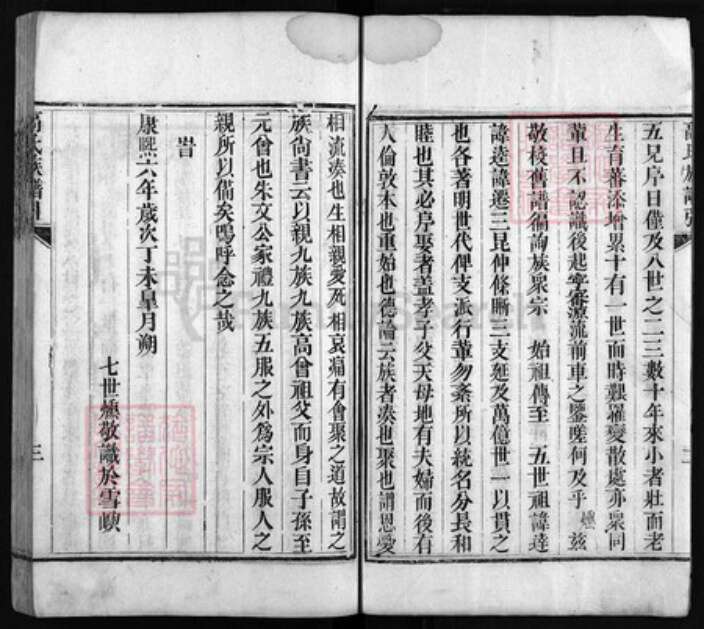 五兄序日僅及八世之二三數十年來小者壯而老
生育蕃添增累十有一世而時艱羅變散處亦衆同
輩且不認識後起寧審源流前車之鑒嗟何及乎 爋 茲
敬梭舊譜徧詢族衆宗 始祖傳至 五世祖諱達
諱逵諱選三昆仲條晰三支延及萬億世一以貫之
也各著明世代俾支派行輩勿紊所以統名分長和
睦也其必序聚者盖孝子父天母地有夫婦而後有
人倫敦本也重始也德論云族者湊也聚也謂恩愛
相流湊也生相親愛死相哀痛有會聚之道故謂之
族尚書云以親九族九族高曾祖父而身自子孫至
元曾也朱文公家禮九族五服之外為宗人服人之
親所以備矣嗚呼念之哉
旹
康熙六年歲次丁未皐月朔
七世爋敬識於雪
高氏族譜引
三